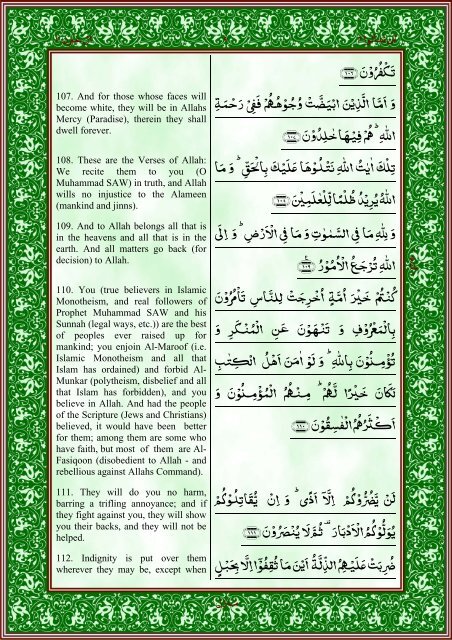 107. And for those whose faces will
become white, they will be in Allahs
Mercy (Paradise), therein they shall
dwell forever.
108. These are the Verses of Allah:
We recite them to you (O
Muhammad SAW) in truth, and Allah
wills no injustice to the Alameen
(mankind and jinns).
109. And to Allah belongs all that is
in the heavens and all that is in the
earth. And all matters go back (for
decision) to Allah.
110. You (true believers in Islamic
Monotheism, and real followers of
Prophet Muhammad SAW and his
Sunnah (legal ways, etc.)) are the best
of peoples ever raised up for
mankind; you enjoin Al-Maroof (i.e.
Islamic Monotheism and all that
Islam has ordained) and forbid Al-
Munkar (polytheism, disbelief and all
that Islam has forbidden), and you
believe in Allah. And had the people
of the Scripture (Jews and Christians)
believed, it would have been better
for them; among them are some who
have faith, but most of them are Al-
Fasiqoon (disobedient to Allah - and
rebellious against Allahs Command).
111. They will do you no harm,
barring a trifling annoyance; and if
they fight against you, they will show
you their backs, and they will not be
helped.
112. Indignity is put over them
wherever they may be, except when
تَكْفُرُوْنَ ﴿۱۰۶﴾
وَ اَمَّا الَّذِيْنَ ابْيَضَّتْ وُجُوْهُهُمْ فَفِيْ رَحْمَةِ
اللهِ ؕ هُمْ فِيْهَا خٰلِدُوْنَ ﴿۱۰۷﴾
تِلْكَ اٰيٰتُ اللهِ نَتْلُوْهَا عَلَيْكَ بِالْحَقِّ ؕ وَ مَا
اللهُ يُرِيْدُ ظُلْمًا لِّلْعٰلَمِيْنَ ﴿۱۰۸﴾
وَ لِلّٰهِ مَا فِي السَّمٰوٰتِ وَ مَا فِي الْاَرْضِ ؕ وَ اِلَى
اللهِ تُرْجَعُ الْاُمُوْرُ ﴿۱۰۹﴾
كُنْتُمْ خَيْرَ اُمَّةٍ اُخْرِجَتْ لِلنَّاسِ تَاْمُرُوْنَ
بِالْمَعْرُوْفِ وَ تَنْهَوْنَ عَنِ الْمُنْكَرِ وَ
تُؤْمِنُوْنَ بِاللهِ ؕ وَ لَوْ اٰمَنَ اَهْلُ الْكِتٰبِ
لَكَانَ خَيْرًا لَّهُمْ ؕ مِنْهُمُ الْمُؤْمِنُوْنَ وَ
اَكْثَرُهُمُ الْفٰسِقُوْنَ ﴿۱۱۰﴾
لَنْ يَّضُرُّوْكُمْ اِلَّاۤ اَذًى ؕ وَ اِنْ يُّقَاتِلُوْكُمْ
يُوَلُّوْكُمُ الْاَدْبَارَ ۟ ثُمَّ لَا يُنْصَرُوْنَ ﴿۱۱۱﴾
ضُرِبَتْ عَلَيْهِمُ الذِّلَّةُ اَيْنَ مَا ثُقِفُوْۤا اِلَّا بِحَبْلٍ